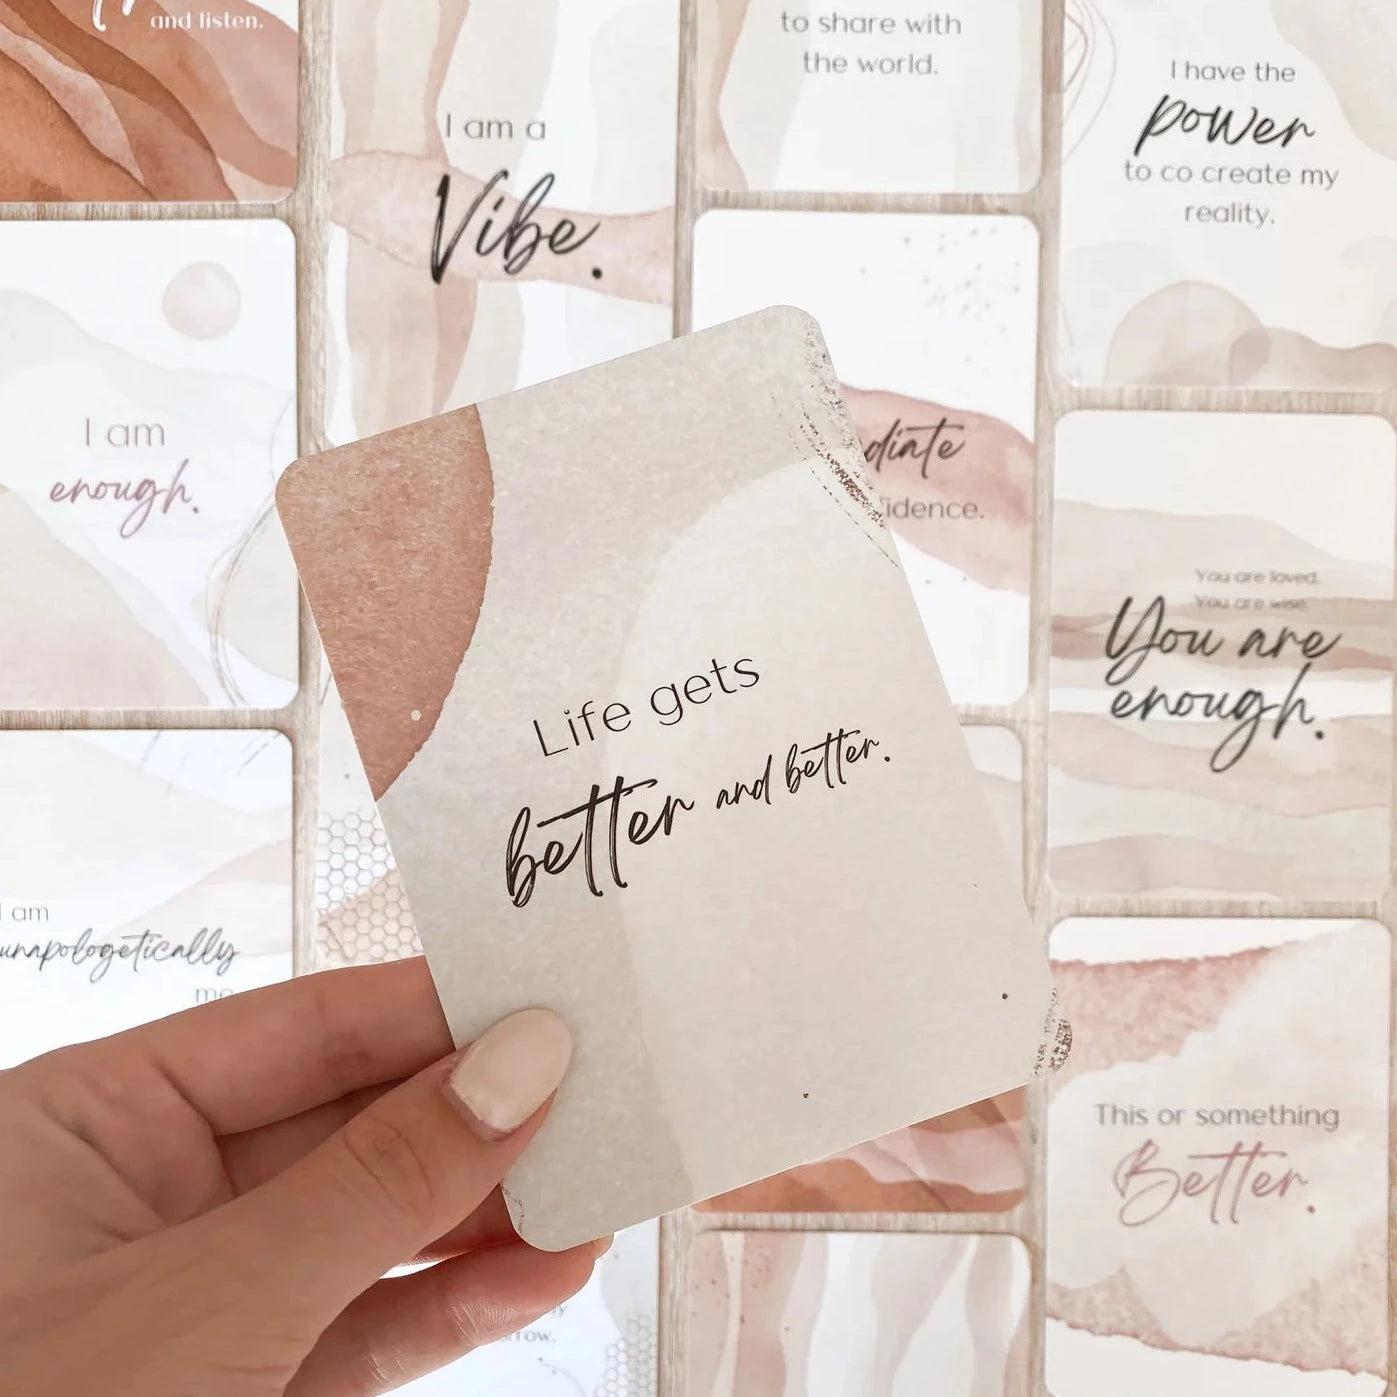 and listen.
I am a
Vibe.
to share with
the world.
I have the
power
to co create my
reality.
I am
enough.
diate
idence.
You are loved.
You are wise.
You are
enough.
Life gets
better and better.
I am
unapologetically
me
This or something
Better.